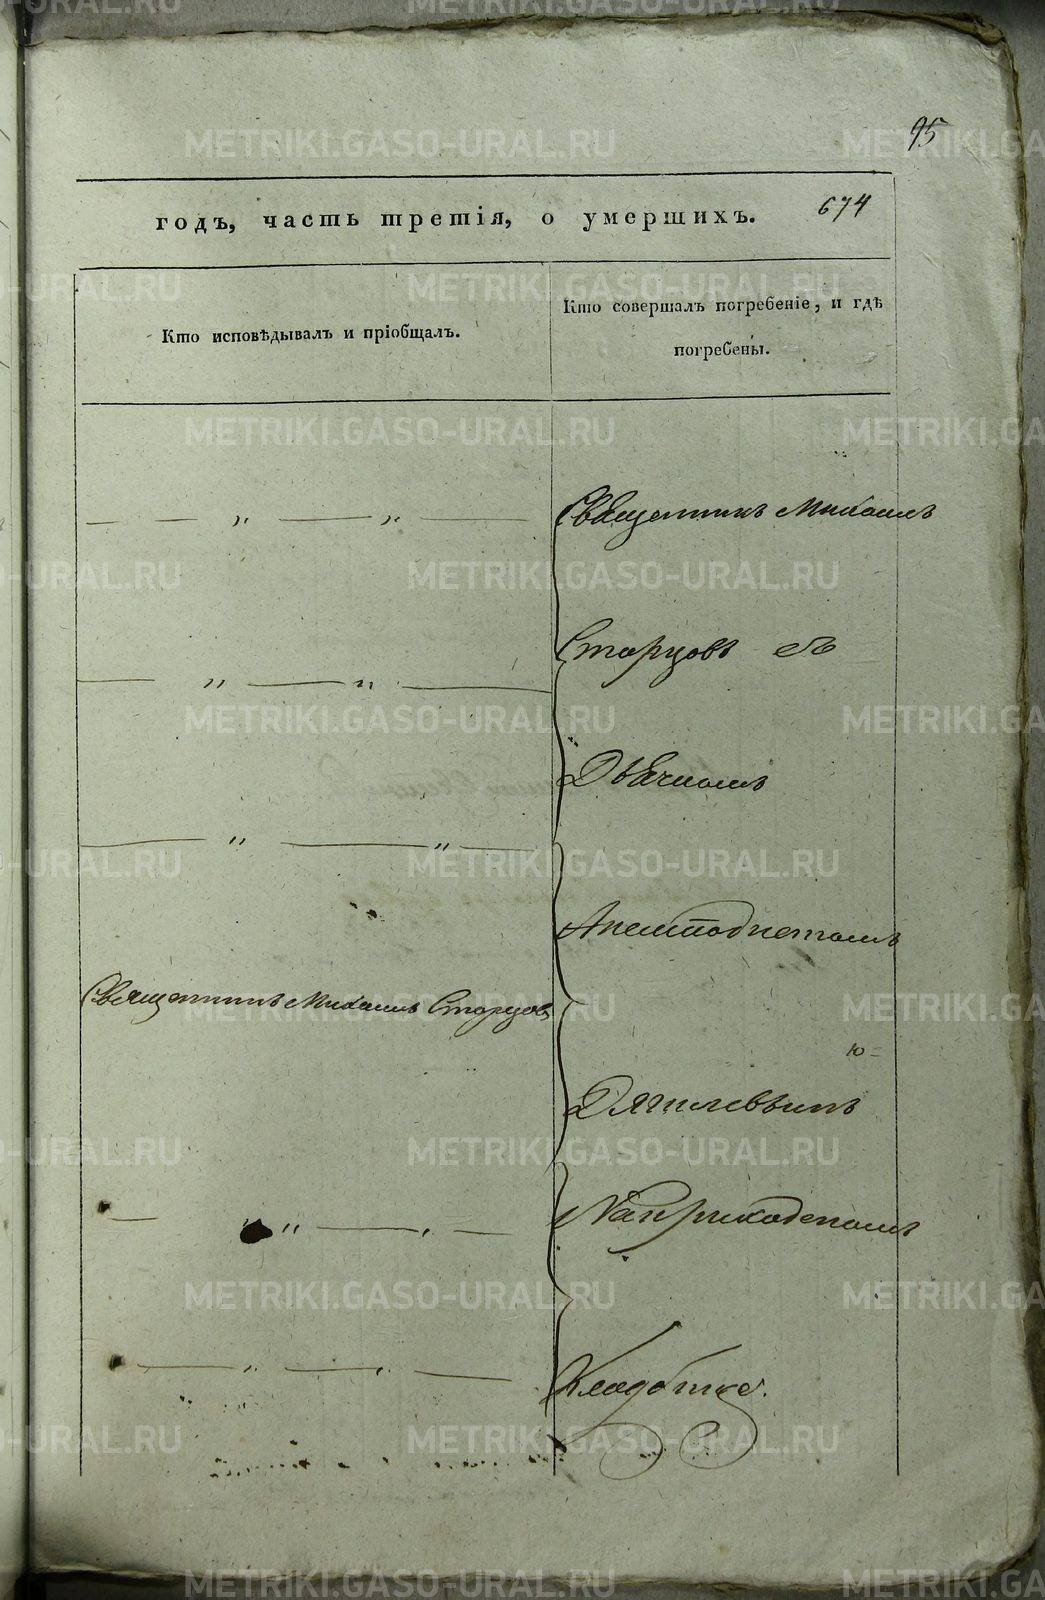 95
674
годъ, часть третія, о умершихъ.
Кто исповѣдывалъ и пріобщалъ.
Кто совершалъ погребеніе, и гдѣ
погребены.
Священникъ Михаилъ
Старцовъ съ
Дьячкомъ
Священникъ Михаилъ Старцовъ
ю=
Дягилевымъ
На приходскомъ
Кладбище.
METRIKI.GASO-URAL.RU